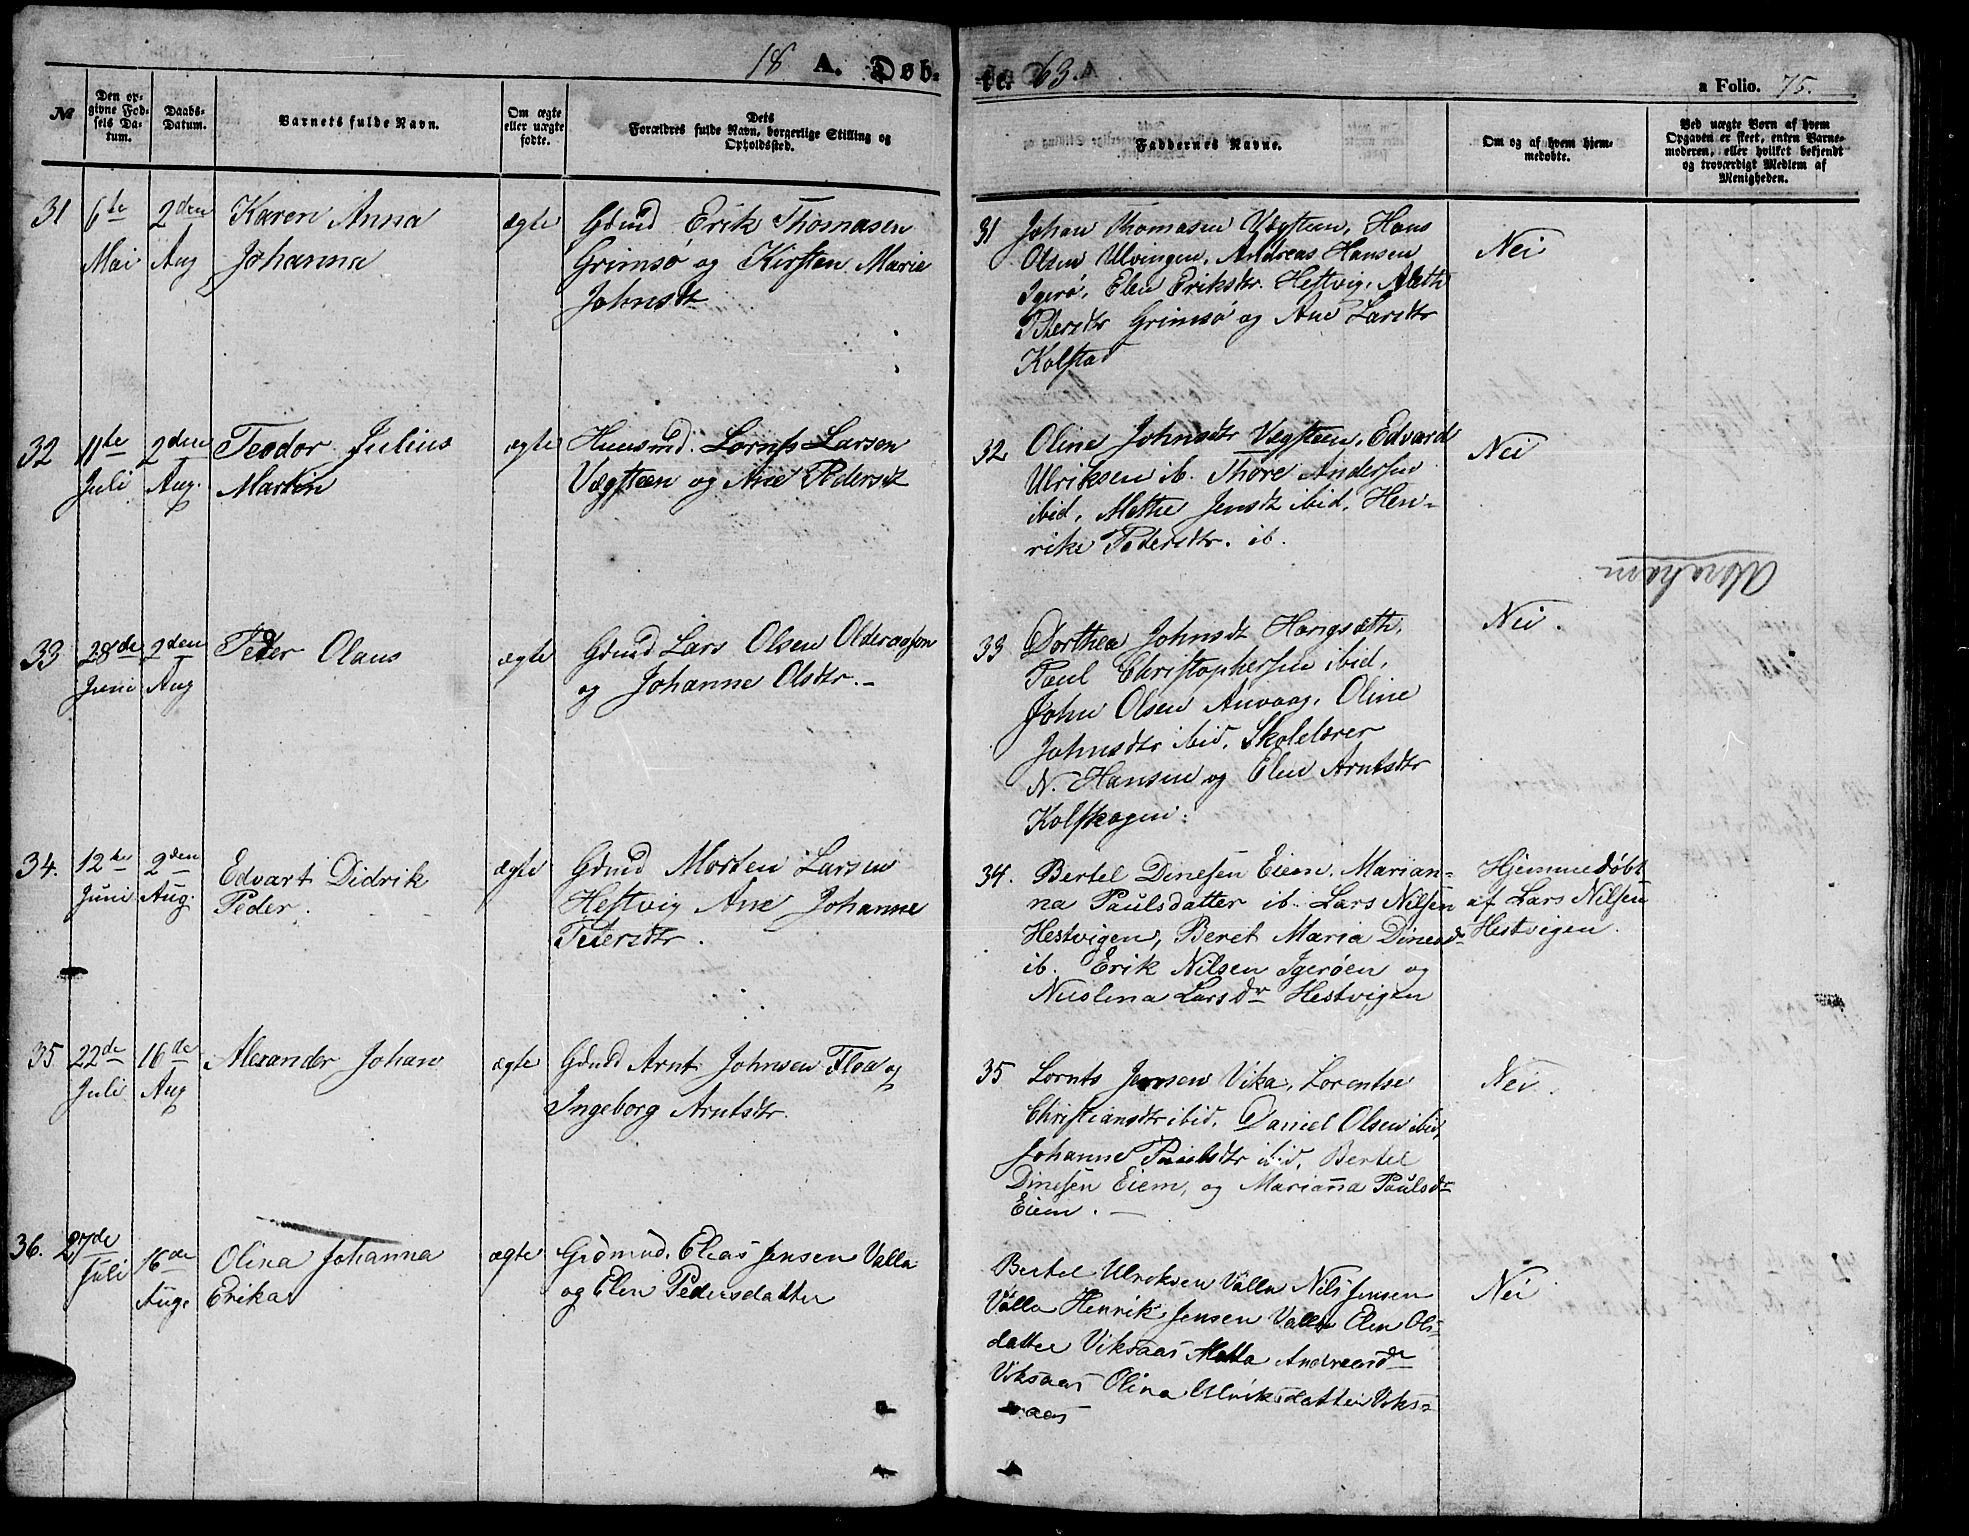 18 A. Døb-
№
Den op-
givne Fød-
sels Da-
tum.
Daabs-
Datum.
Barnets fulde Navn.
Om ægte
eller uægte
fødte.
Dets
Forældres fulde Navn, borgerlige Stilling og
Opholdssted.
31 6te 2den Karen Anna ægte Gdmd Erik Thomasen
Mai Aug Johanna Grimsø og Kirsten Marie
Johnsdt
32 11te 2den Teodor Julius ægte Huusmd. Lornts Larsen
Juli Aug. Martin Vægsteen og Ane Pedersdt
33 28de 2den Peder Olaus ægte Gdmd Lars Olsen
Juni Aug og Johanne Olsdtr.-
34. 12te 2den Edvart Didrik ægte Gdmd Morten Larsen
Juni Aug. Peder. Hestvig Ane Johanne
Pedersdtr.
35 22de 16de Alexander Johan ægte Gdmd Arnt Johnsen Floa og
Juli Aug Ingeborg Arntsdtr.
36. 27de 16de Olina Johanna ægte Grdmnd. Elias Jensen Valla
Juli Aug. Erika og Elen Pedersdatter
te. 63. a Folio. 75.
Faddernes Navne.
Om og af hvem hjem-
medøbte.
Ved uægte Børn af hvem
Opgaven er skeet, enten Barne-
moderen, eller hvilket bekjendt
og troværdigt Medlem af
Menigheden.
31 Johan Thomasen Vægsteen, Hans Nei
Olsen Ulvingen, Andreas Hansen
Igerø, Elen Eriksdtr. Hestvig, Meth
Pedersdtr Grimsø og Ane Larsdtr
Kolstad
32 Oline Johnsdtr Vægsteen, Edvard Nei
Ulriksen ib. Thore Andersen
ibid, Methe Jensdt ibid, Hen-
rike Pedersdtr. ib.
Abraham
33 Dorthea Johnsdt Horigsæth, Nei.
Paul Christophersen ibid,
John Olsen Anvaag, Oline
Johnsdtr ibid, Skolelærer
N. Hansen og Elen Arntsdtr
Kolskogen.
34. Bertel Dinesen Eiem, Marian- Hjemmedøbt
na Paulsdatter ib. Lars Nilsen af Lars Nilsen
Hestvigen, Beret Maria Dinesdr Hestvigen.
ib. Erik Nilsen Igerøen og
Larsdr Hestvigen
35 Lornts Jensen Vika, Lorentse Nei.
Christiansdtr ibid, Daniel Olsen ibid,
Johanne Paulsdtr ibid, Bertel
Dinesen Eiem, og Marianna Paulsdr
Eiem. -
Bertel Ulriksen Valla Nils Jensen Nei
Valla Henrik Jensen Valla Elen Ols-
datter Viksaas Metta Andreasdr
Viksaas Olina Ulriksdatter Viks-
aas